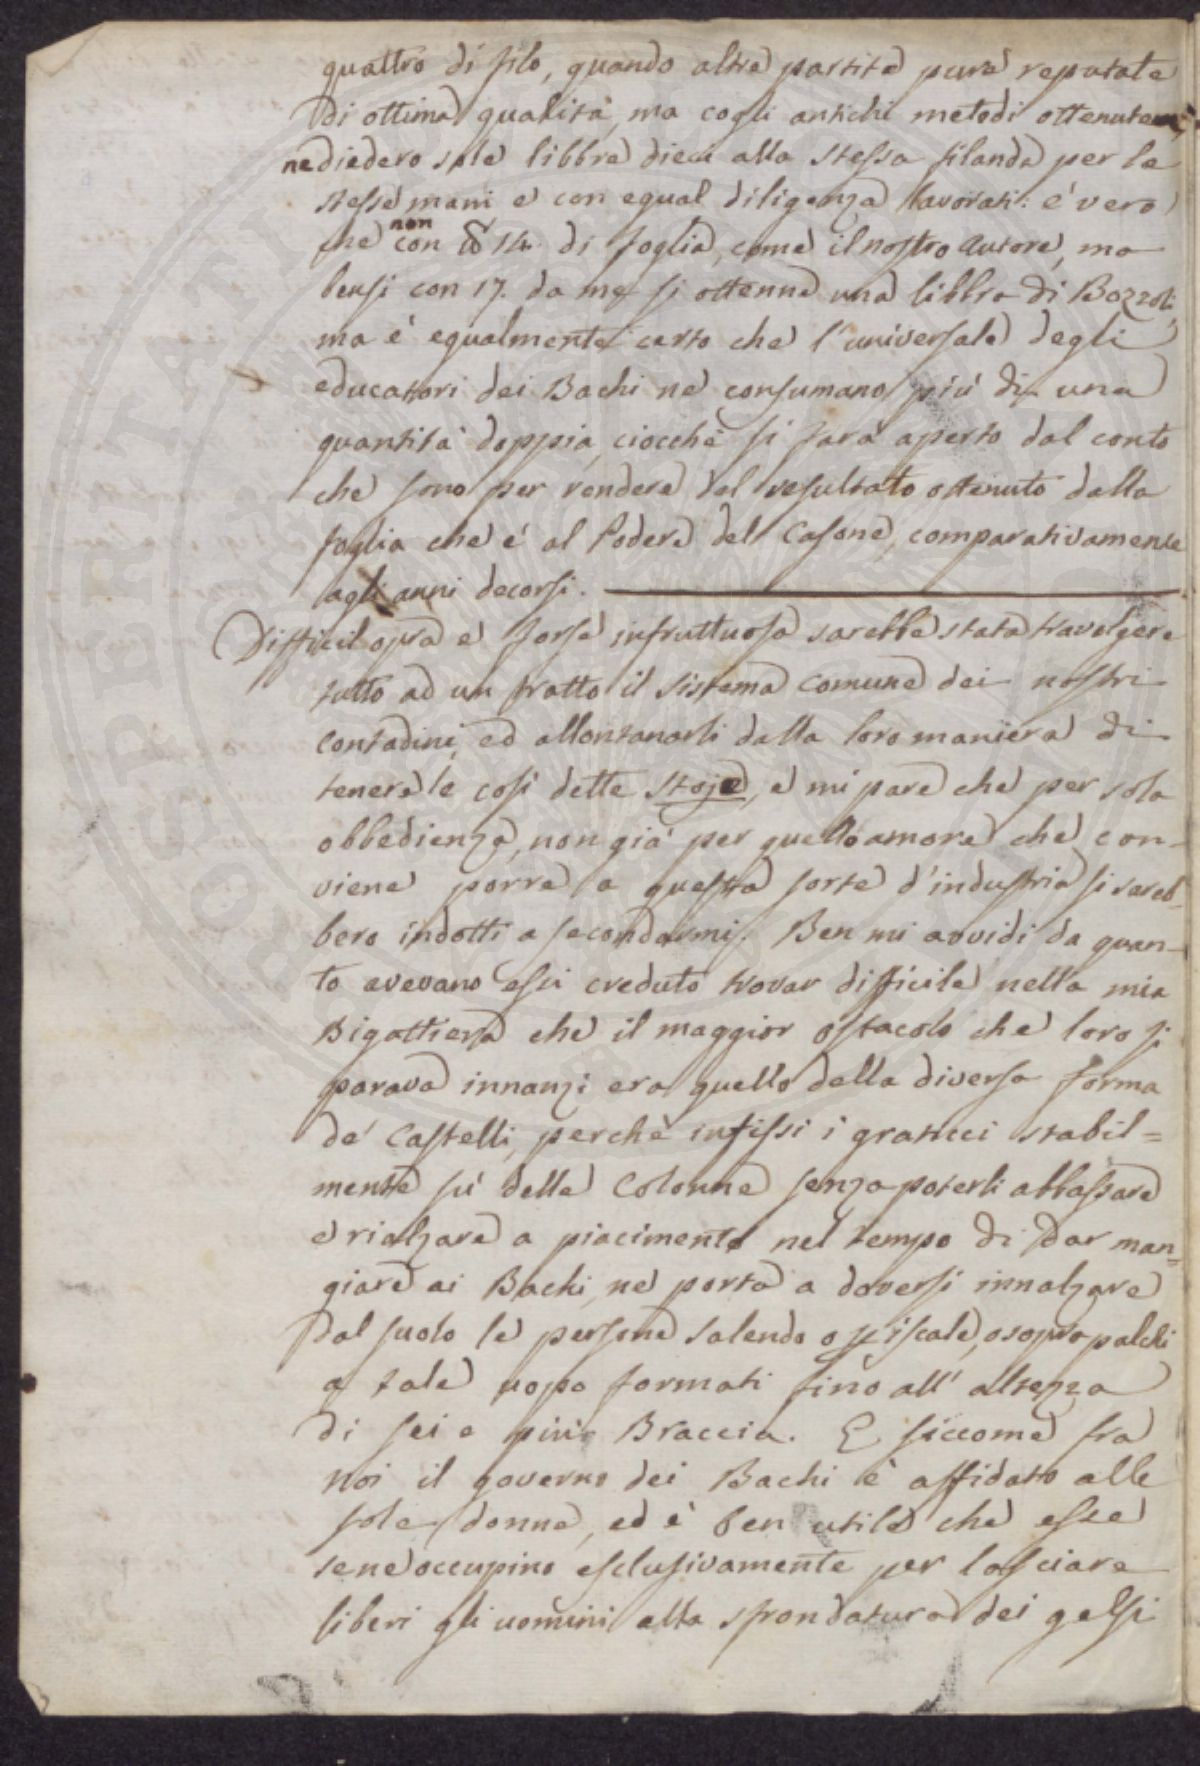 quattro di filo, quando altre partite pure reputate
di ottima qualità, ma cogli antichi metodi ottenute
ne diedero sole libbre dieci alla stessa filanda per le
stesse mani e con egual diligenza lavorati: è vero
che non con 14. di foglia, come il nostro Autore, ma
bensi con 17. da me si ottenne una libbra di Bozzoli,
ma è egualmente certo che l'universale degli
educatori dei Bachi ne consumano più di una
quantità doppia, ciocchè si farà aperto dal conto
che sono per rendere del resultato ottenuto dalla
foglia che è al Podere del Casone, comparativamente
agli anni decorsi.
Difficil opra e forse infruttuosa sarebbe stata travolgere
tutto ad un tratto il sistema comune dei nostri
contadini, ed allontanarli dalla loro maniera di
tenere le così dette Stoje, e mi pare che per sola
obbedienza, non già per quello amore che con-
viene porre a questa sorte d'industria si sareb-
bero indotti a secondarmi. Ben mi avvidi da quan-
to avevano essi creduto trovar difficile nella mia
Bigattiera che il maggior ostacolo che loro si
parava innanzi era quello della diversa forma
de' Castelli, perchè infissi i graticci stabil=
mente sù delle Colonne senza poterli abbassare
e rialzare a piacimento nel tempo di dar man=
giare ai Bachi, ne porta a doversi innalzare
dal suolo le persone salendo o scale, o sopra palchi
a tale uopo formati fino all' altezza
di sei e più Braccia. E siccome fra
noi il governo dei Bachi è affidato alle
sole donne, ed è ben utile che esse
se ne occupino esclusivamente per lasciare
liberi gli uomini alla sfrondatura dei gelsi
PROSPERITATI